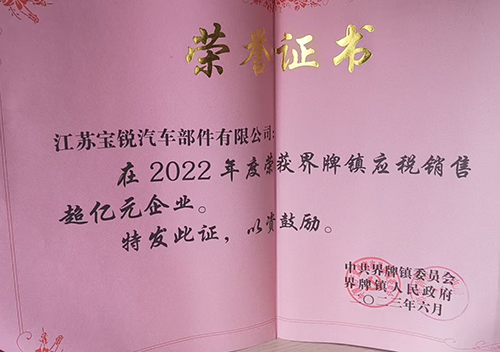 荣誉证书
江苏宝锐汽车部件有限公司:
在2022年度荣获界牌镇应税销售
超亿元企业。
特发此证，以资鼓励。
中共界牌镇委员会
界牌镇人民政府
二〇二三年六月